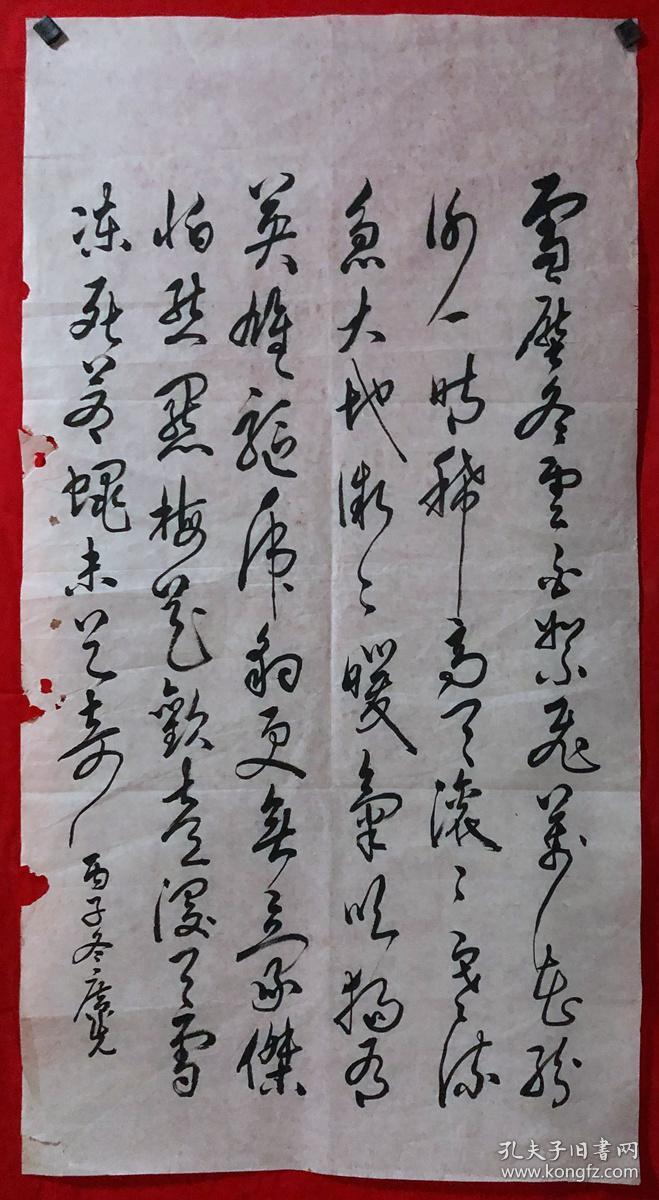 雪壓冬雲白絮飛萬花紛
謝一時稀高天滚〻寒流
急大地微〻暖氣吹獨有
英雄驅虎豹更無豪傑
怕熊羆梅花歡喜漫天雪
凍死蒼蠅未足奇
丙子冬廣先
孔夫子旧書网
www.kongfz.com